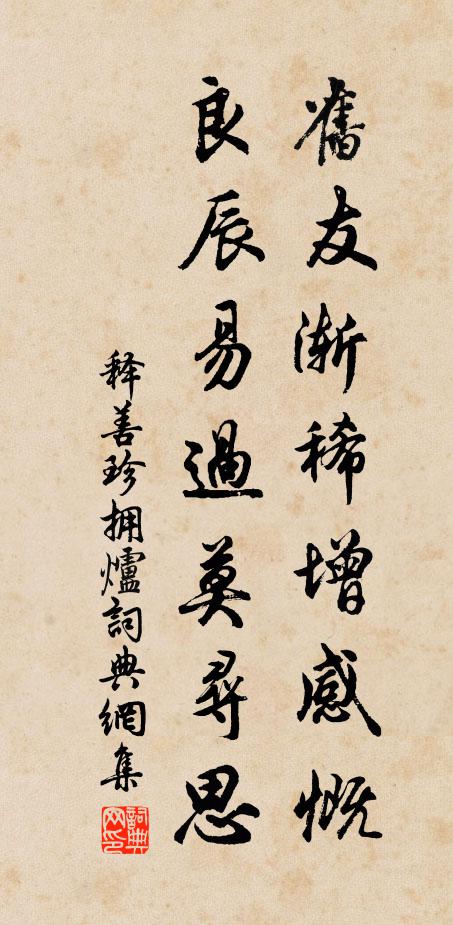 舊友渐稀增感慨
良辰易過莫尋思
释善珍拥爐詞典網集
詞典
网印